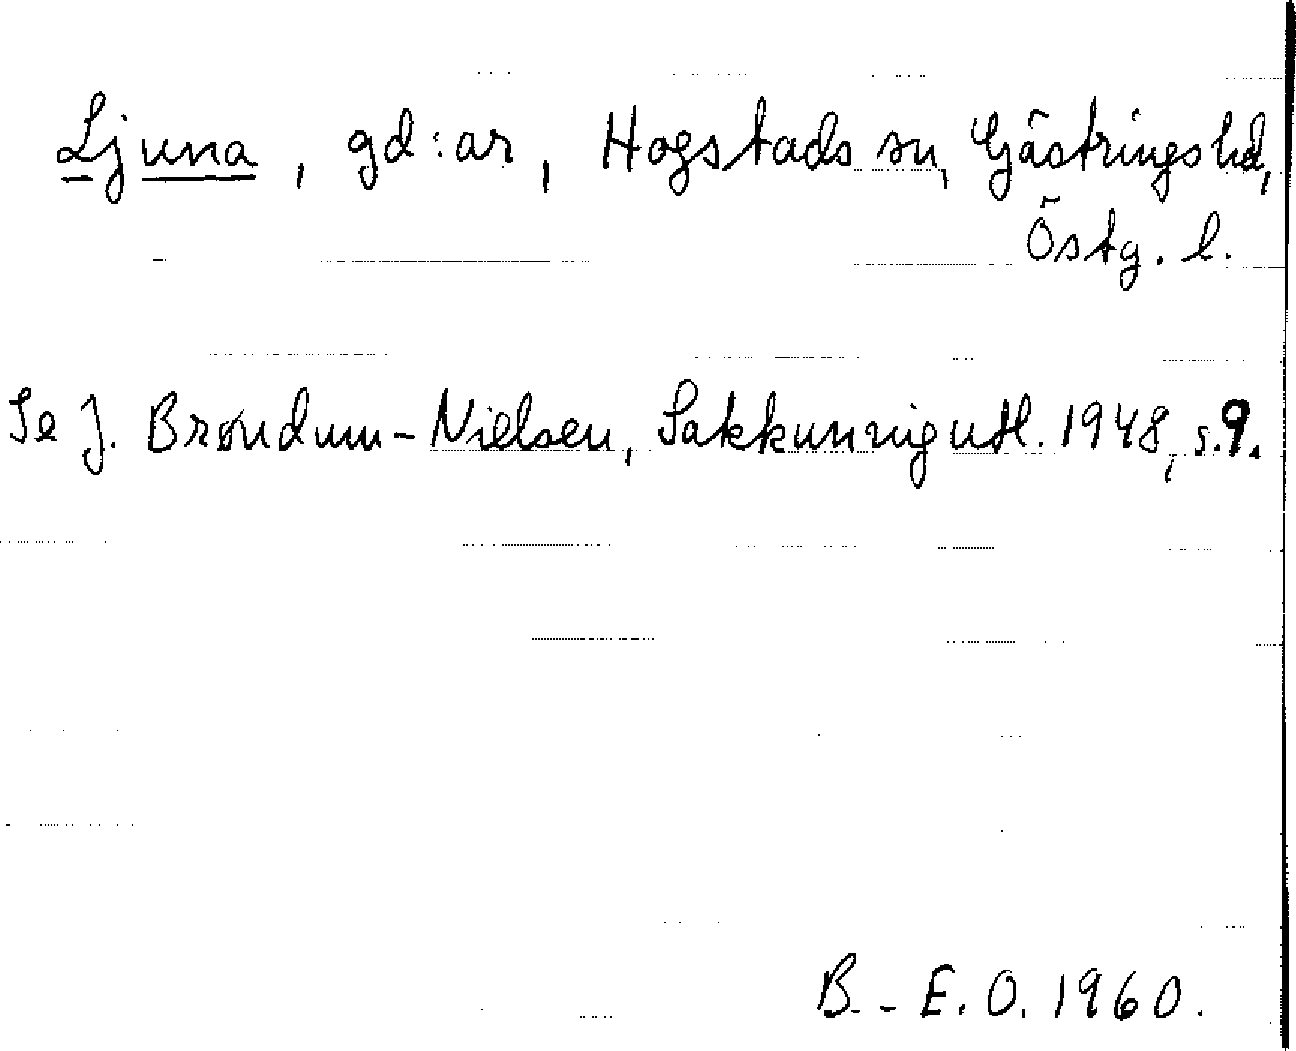 Ljuna, gd:ar, Hogstads sn, Gästrings hd,
Östg. l.
Se J. Brøndum-Nielsen, Sakkunnigutl. 1948, s.9.
B.-E.O. 1960.